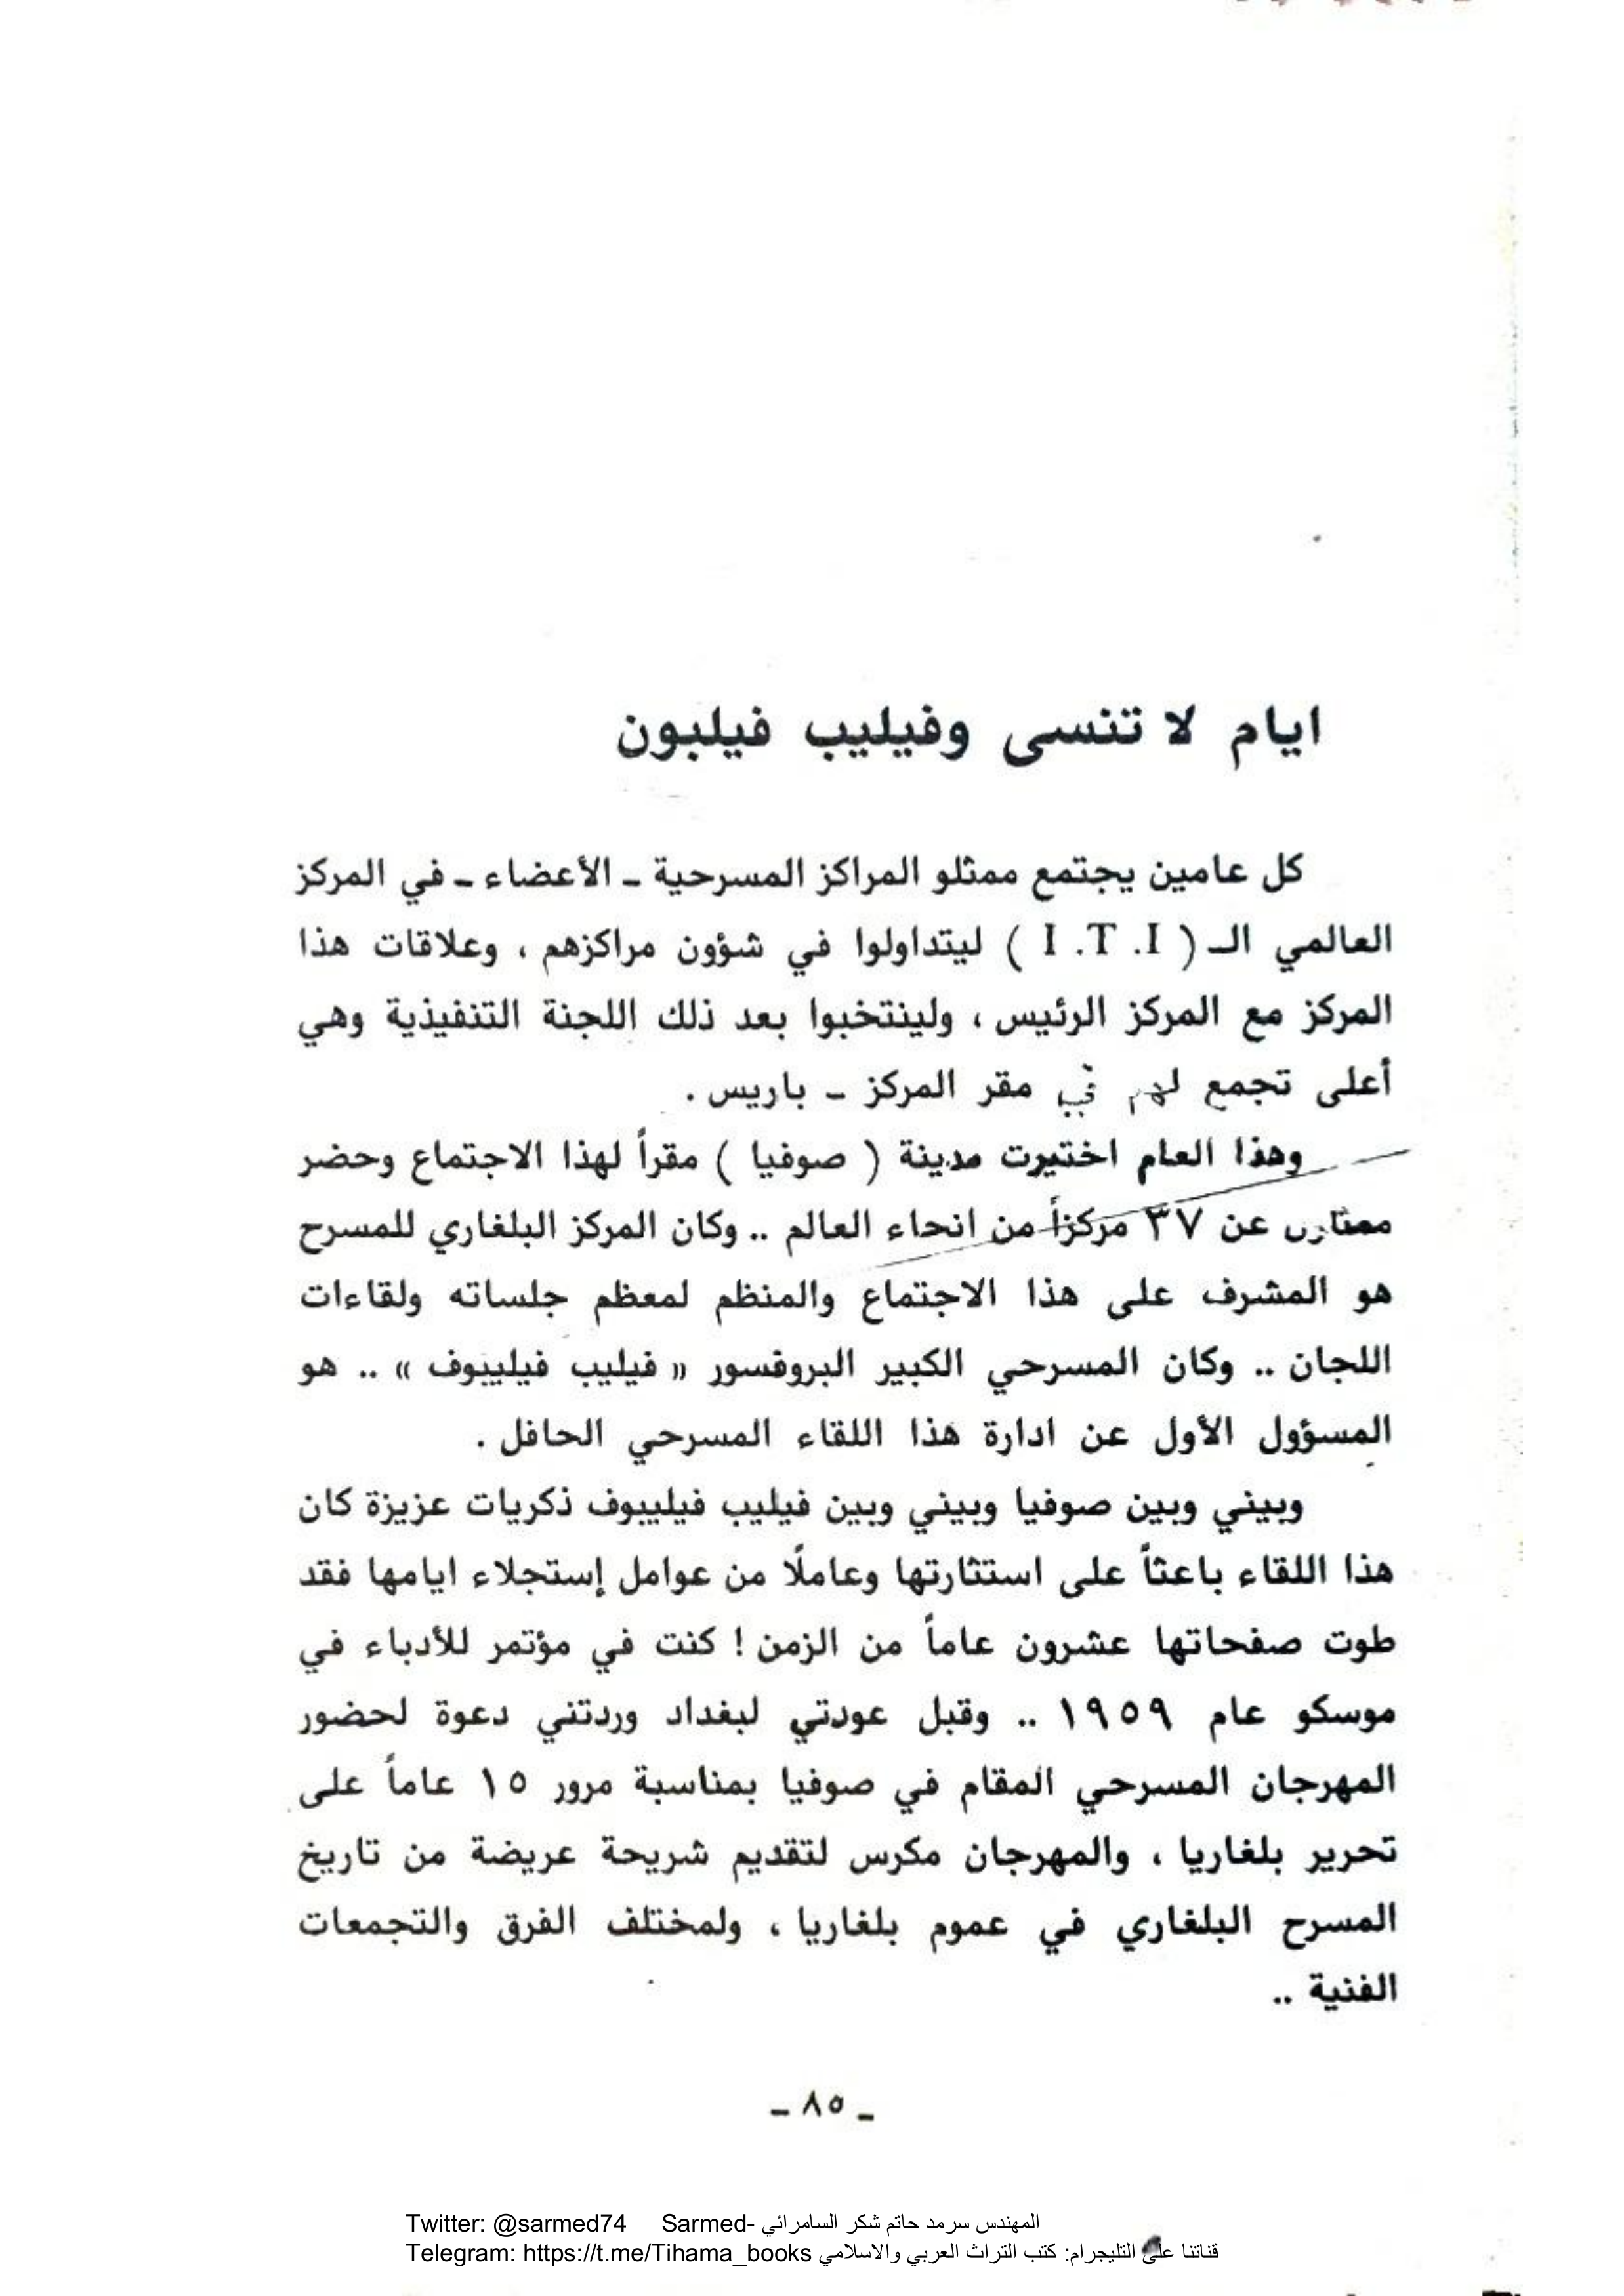 ايام لا تنسى وفيليب فيلبون
كل عامين يجتمع ممثلو المراكز المسرحية ـ الأعضاء ـ في المركز
العالمي الـ ( I .T .I ) ليتداولوا في شؤون مراكزهم ، وعلاقات هذا
المركز مع المركز الرئيس ، ولينتخبوا بعد ذلك اللجنة التنفيذية وهي
أعلى تجمع لهم في مقر المركز ـ باريس .
وهذا العام اختيرت مدينة ( صوفيا ) مقراً لهذا الاجتماع وحضر
عن ٣٧ مركزاً من انحاء العالم .. وكان المركز البلغاري للمسرح
هو المشرف على هذا الاجتماع والمنظم لمعظم جلساته ولقاءات
اللجان .. وكان المسرحي الكبير البروفسور « فيليب فيليبوف » .. هو
المسؤول الأول عن ادارة هذا اللقاء المسرحي الحافل .
وبيني وبين صوفيا وبيني وبين فيليب فيليبوف ذكريات عزيزة كان
هذا اللقاء باعثاً على استثارتها وعاملًا من عوامل إستجلاء ايامها فقد
طوت صفحاتها عشرون عاماً من الزمن ! كنت في مؤتمر للأدباء في
موسكو عام ١٩٥٩ .. وقبل عودتي لبغداد وردتني دعوة لحضور
المهرجان المسرحي المقام في صوفيا بمناسبة مرور ١٥ عاماً على
تحرير بلغاريا ، والمهرجان مكرس لتقديم شريحة عريضة من تاريخ
المسرح البلغاري في عموم بلغاريا ، ولمختلف الفرق والتجمعات
الفنية ..
ـ ٨٥ ـ
Twitter: @sarmed74 Sarmed- المهندس سرمد حاتم شكر السامرائي
Telegram: https://t.me/Tihama_books قناتنا على التليجرام: كتب التراث العربي والاسلامي